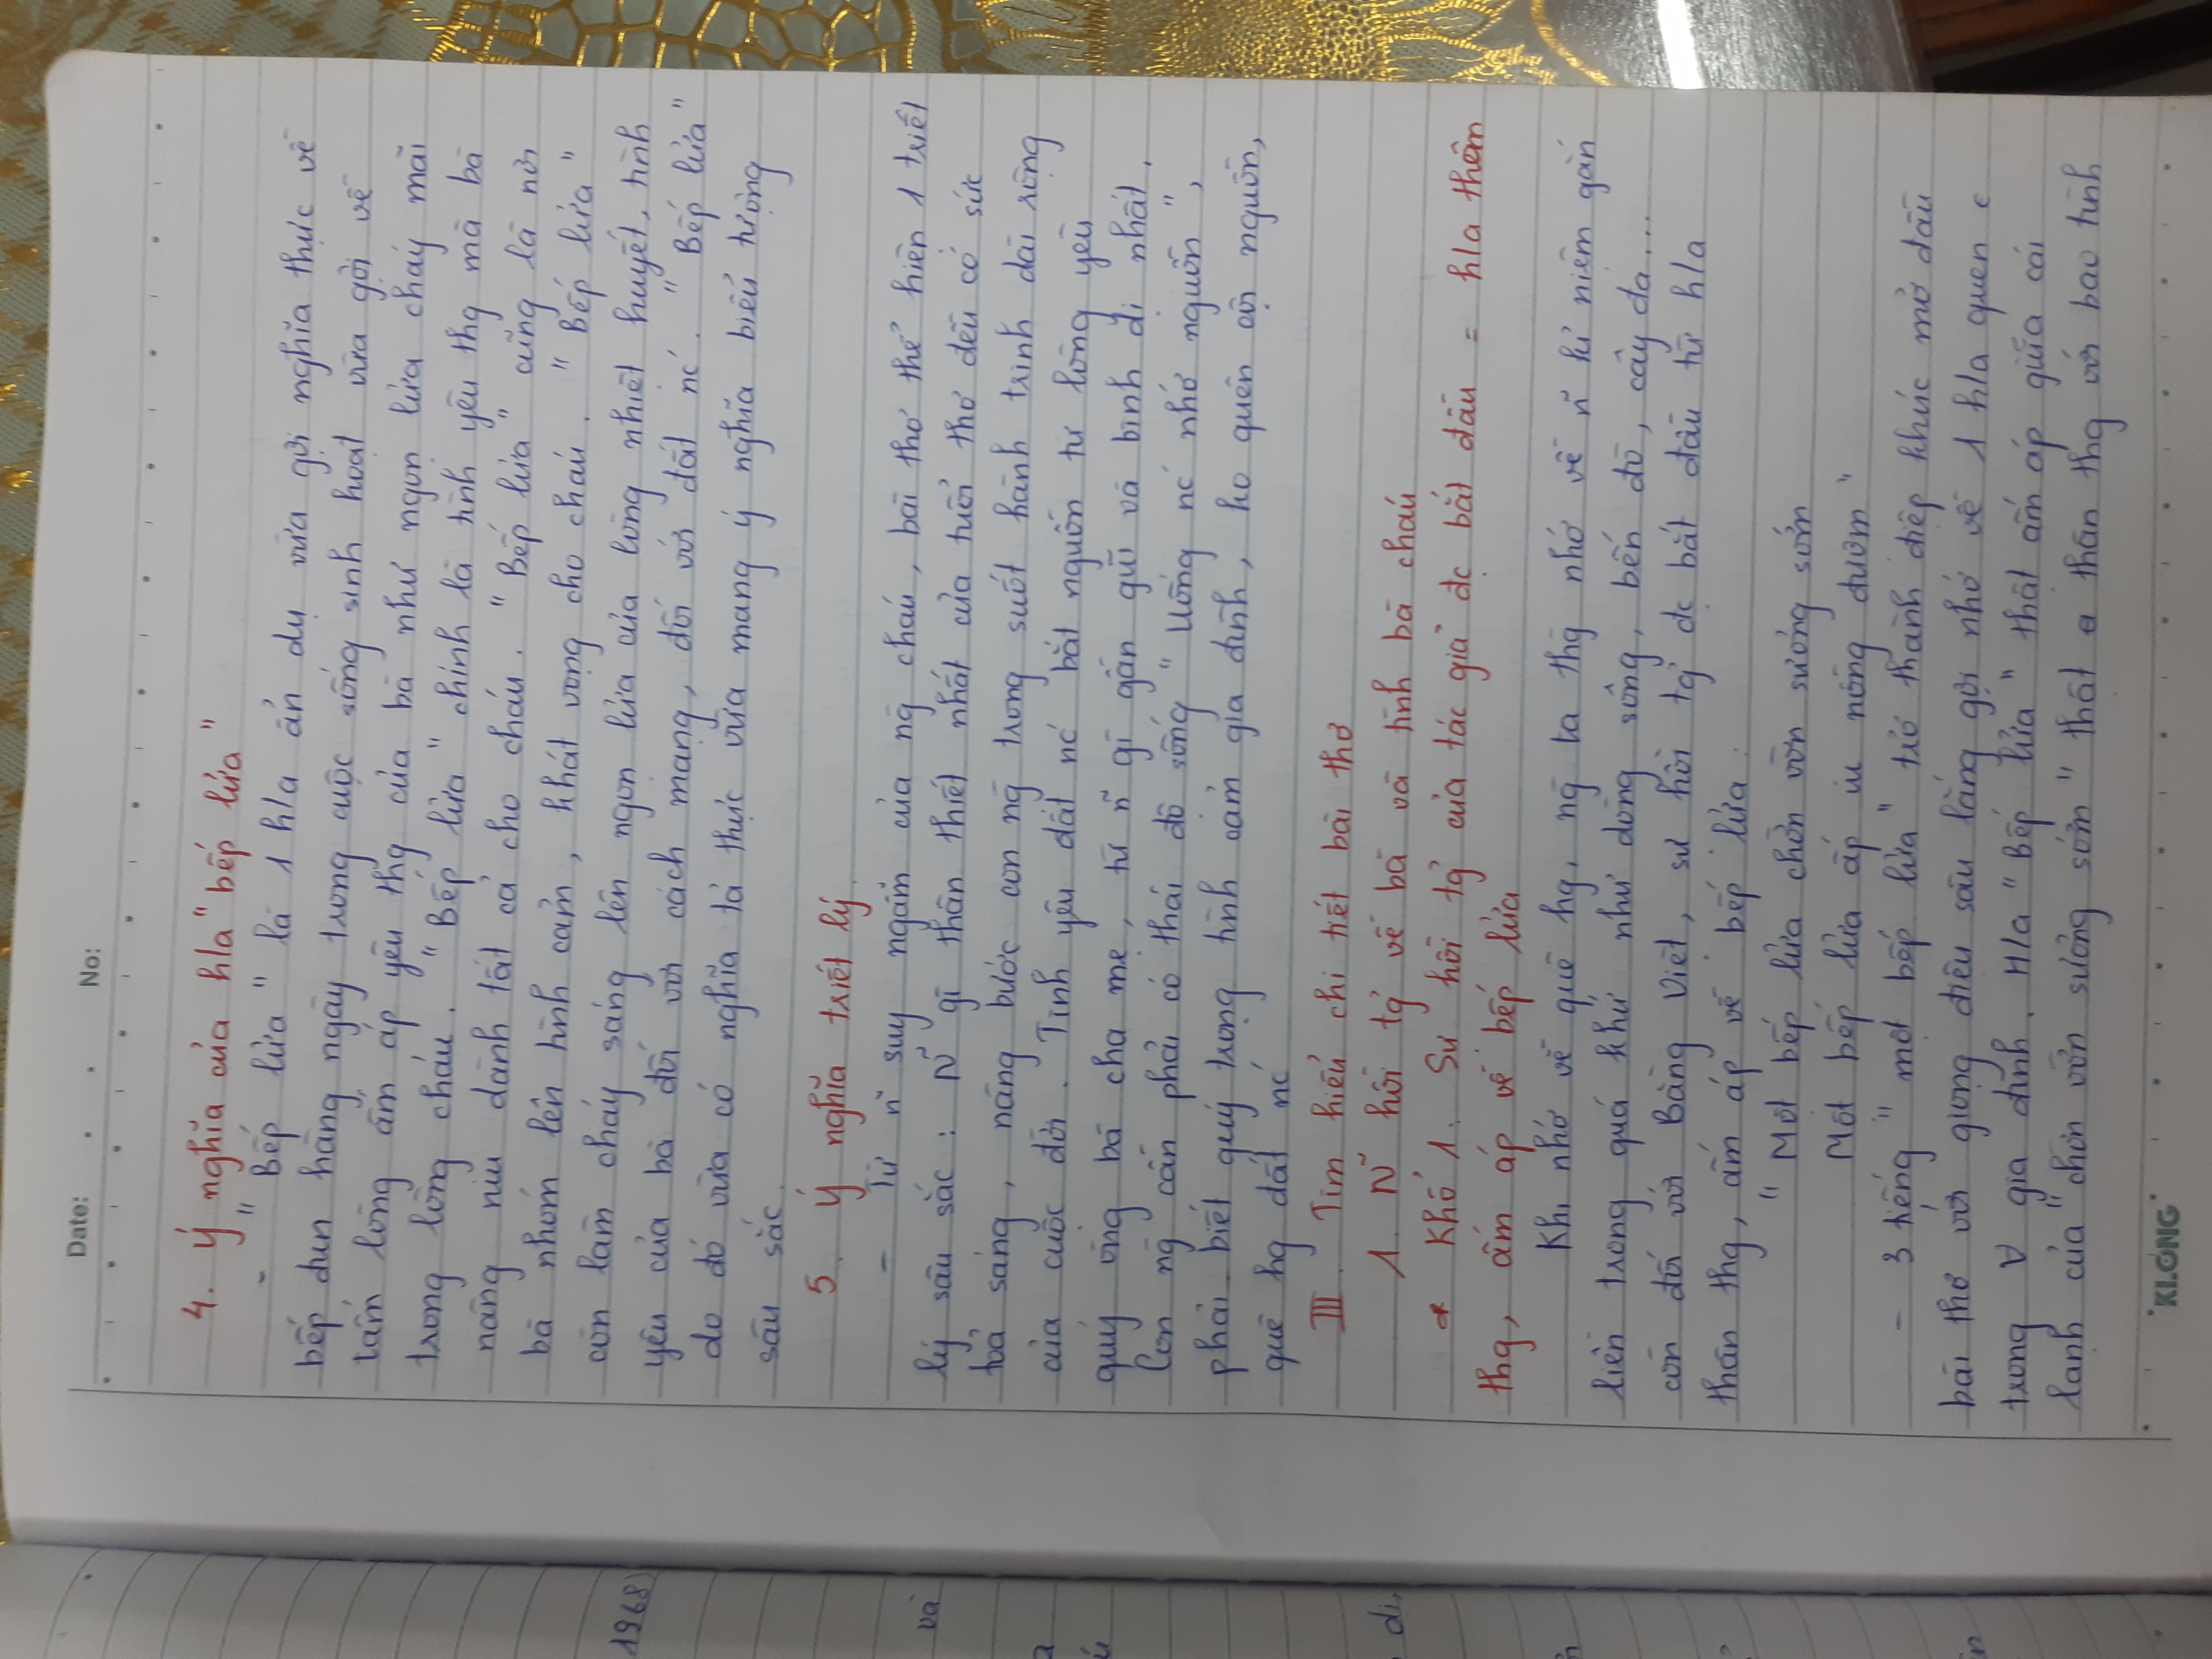 Date: No:
4. Ý nghĩa của h/a "bếp lửa"
- "Bếp lửa" là 1 h/a ẩn dụ vừa gợi nghĩa thực về
bếp đun hằng ngày trong cuộc sống sinh hoạt vừa gợi về
tấm lòng ấm áp yêu thg của bà như ngọn lửa cháy mãi
trong lòng cháu. "Bếp lửa" chính là tình yêu thg mà bà
nâng niu dành tất cả cho cháu. "Bếp lửa" cũng là nơi
bà nhóm lên tình cảm, khát vọng cho cháu. "Bếp lửa"
còn làm cháy sáng lên ngọn lửa của lòng nhiệt huyết, tình
yêu của bà đối với cách mạng, đối với đất nc. "Bếp lửa"
do đó vừa có nghĩa tả thực vừa mang ý nghĩa biểu tượng
sâu sắc.
5. Ý nghĩa triết lý.
- Từ ñ suy ngẫm của ng cháu, bài thơ thể hiện 1 triết
lý sâu sắc: Ñ gì thân thiết nhất của tuổi thơ đều có sức
toả sáng, nâng bước con ng trong suốt hành trình dài rộng
của cuộc đời. Tình yêu đất nc bắt nguồn từ lòng yêu
quý ông bà cha mẹ, từ ñ gì gần gũi và bình dị nhất.
Con ng cần phải có thái độ sống "Uống nc nhớ nguồn",
phải biết quý trọng tình cảm gia đình, ko quên cội nguồn,
quê hg đất nc
III. Tìm hiểu chi tiết bài thơ
1. Ñ hồi tg về bà và tình bà cháu
* Khổ 1. Sự hồi tg của tác giả đc bắt đầu = h/a thân
thg, ấm áp về bếp lửa
Khi nhớ về quê hg, ng ta thg nhớ về ñ kỉ niệm gắn
liền trong quá khứ như dòng sông, bến đò, cây đa...
còn đối với Bằng Việt, sự hồi tg đc bắt đầu từ h/a
thân thg, ấm áp về bếp lửa:
"Một bếp lửa chờn vờn sương sớm
Một bếp lửa ấp iu nồng đượm"
- 3 tiếng "một bếp lửa" trở thành điệp khúc mở đầu
bài thơ với giọng điệu sâu lắng gợi nhớ về 1 h/a quen
trong ∀ gia đình. H/a "Bếp lửa" thật ấm áp giữa cái
lạnh của "chờn vờn sương sớm" thật thân thg với bao tình
KLONG
1968)
và
di,